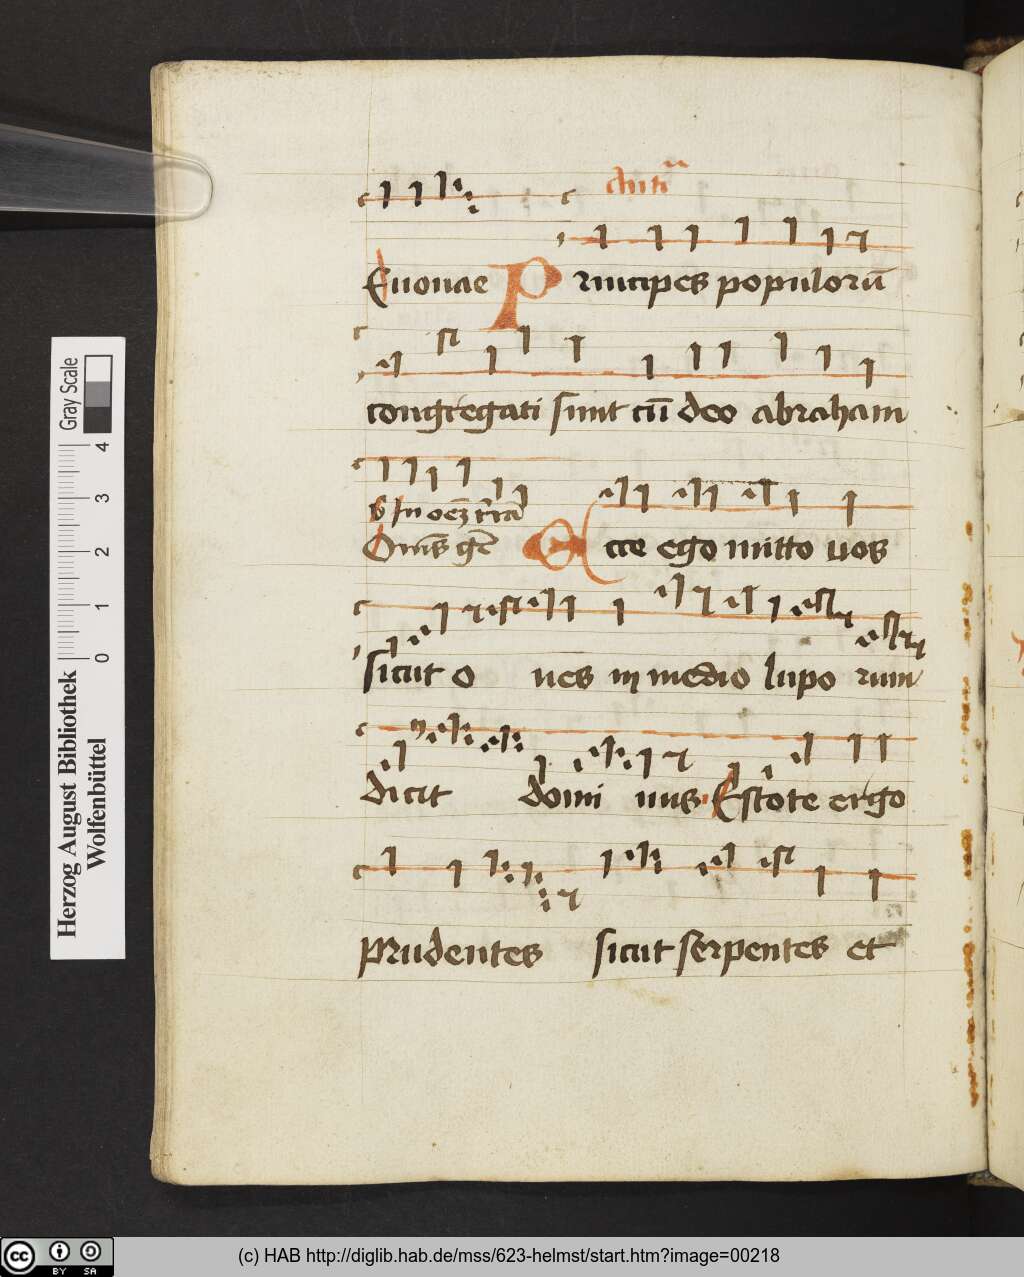 Antia
Euouae Principes populorū
congregati sunt cū deo abraham
In oēz t'rā
Omīs gēt Ecce ego mitto uos
sicut o ues in medio lupo rum
dicit domi nus Estote ergo
prudentes sicut serpentes et
Herzog August Bibliothek
Wolfenbüttel
0 1 2 3 4
Gray Scale
cc BY SA
(c) HAB http://diglib.hab.de/mss/623-helmst/start.htm?image=00218